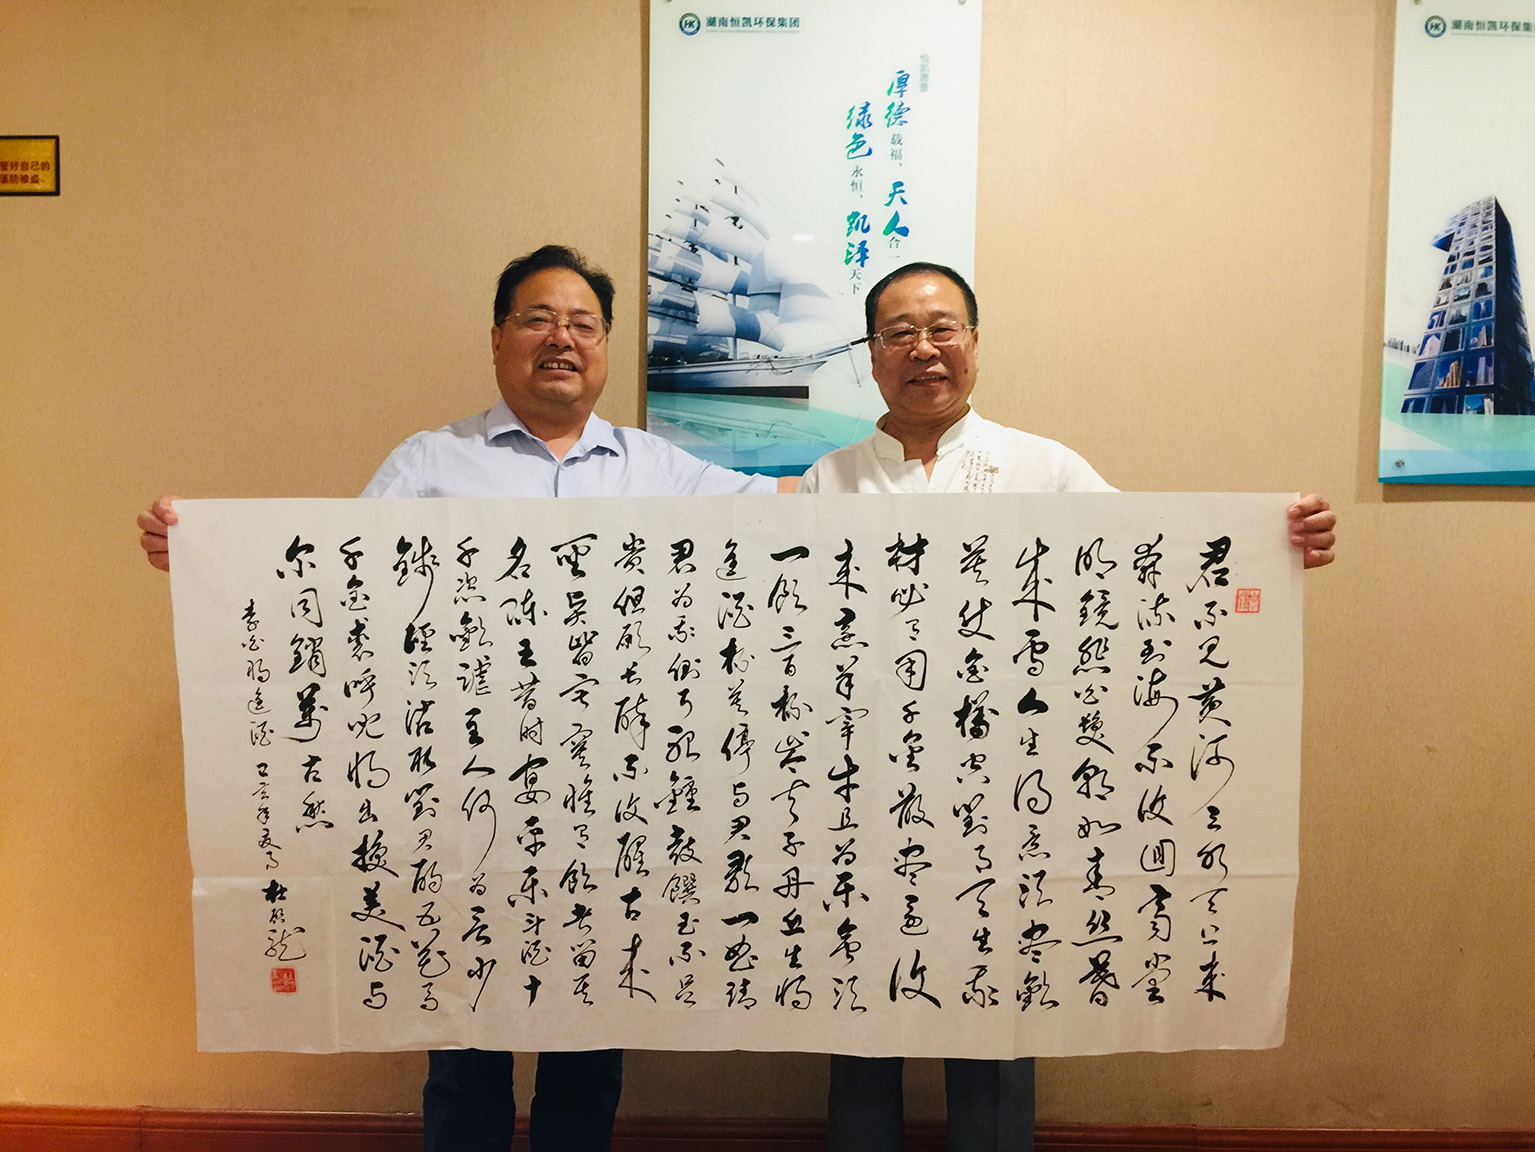 湖南恒凯环保集团
恒凯愿景
厚德载福,天人合一
绿色永恒,凯泽天下
湖南恒凯环保集
管好自己的
谨防被盗。
君不见黄河之水天上来
奔流到海不復迴高堂
明鏡悲白髮朝如青丝暮
成雪人生得意须尽歡
莫使金樽空對月天生我
材必有用千金散尽還復
来烹羊宰牛且为乐會须
一飲三百杯岑夫子丹丘生将
進酒杯莫停与君歌一曲請
君为我倾耳听鐘鼓饌玉不足
贵但願长醉不復醒古来
圣賢皆寂寞惟有飲者留其
名陈王昔时宴平乐斗酒十
千恣歡謔主人何为言少
錢径须沽取對君酌五花马
千金裘呼児将出换美酒与
尔同銷萬古愁
李白将進酒 己亥年夏月 杜啟龍